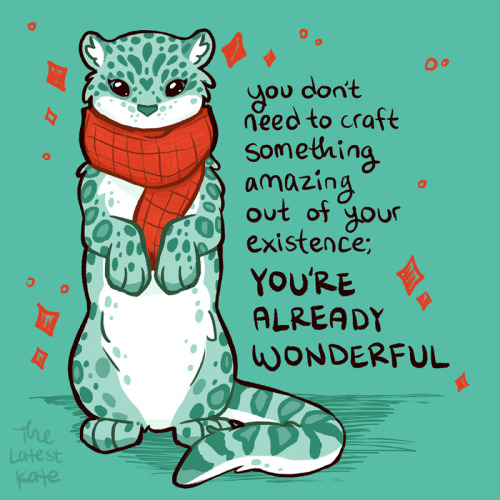 you don't
need to craft
something
amazing
out of your
existence;
YOU'RE
ALREADY
WONDERFUL
The
Latest
Kate